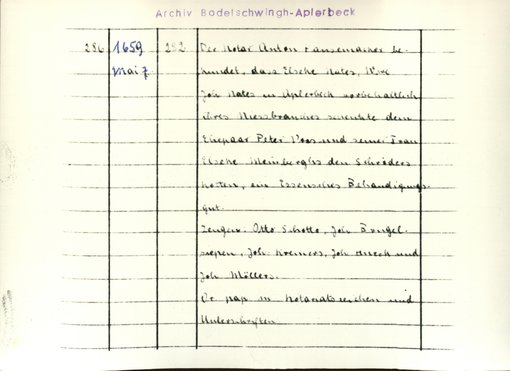 Archiv Bodelschwingh-Aplerbeck
286 1659 Mai 7. 292 Der Notar Anton be-
kundet, dass Elsche Nates, Wwe
Joh Nates in Aplerbeck vorbehaltlich
ihres Niessbrauches schenkte dem
Ehepaar Peter Voss und seiner Frau
Elsche Meinberghs den Schröders
Kotten, ein Essensches Behandigungs-
gut.
Zeugen: Otto Schotte, Joh Brügel-
siepen, Joh. Kremers, Joh und
Joh Möllers.
Or Pap m Notariatszeichen und
Unterschriften